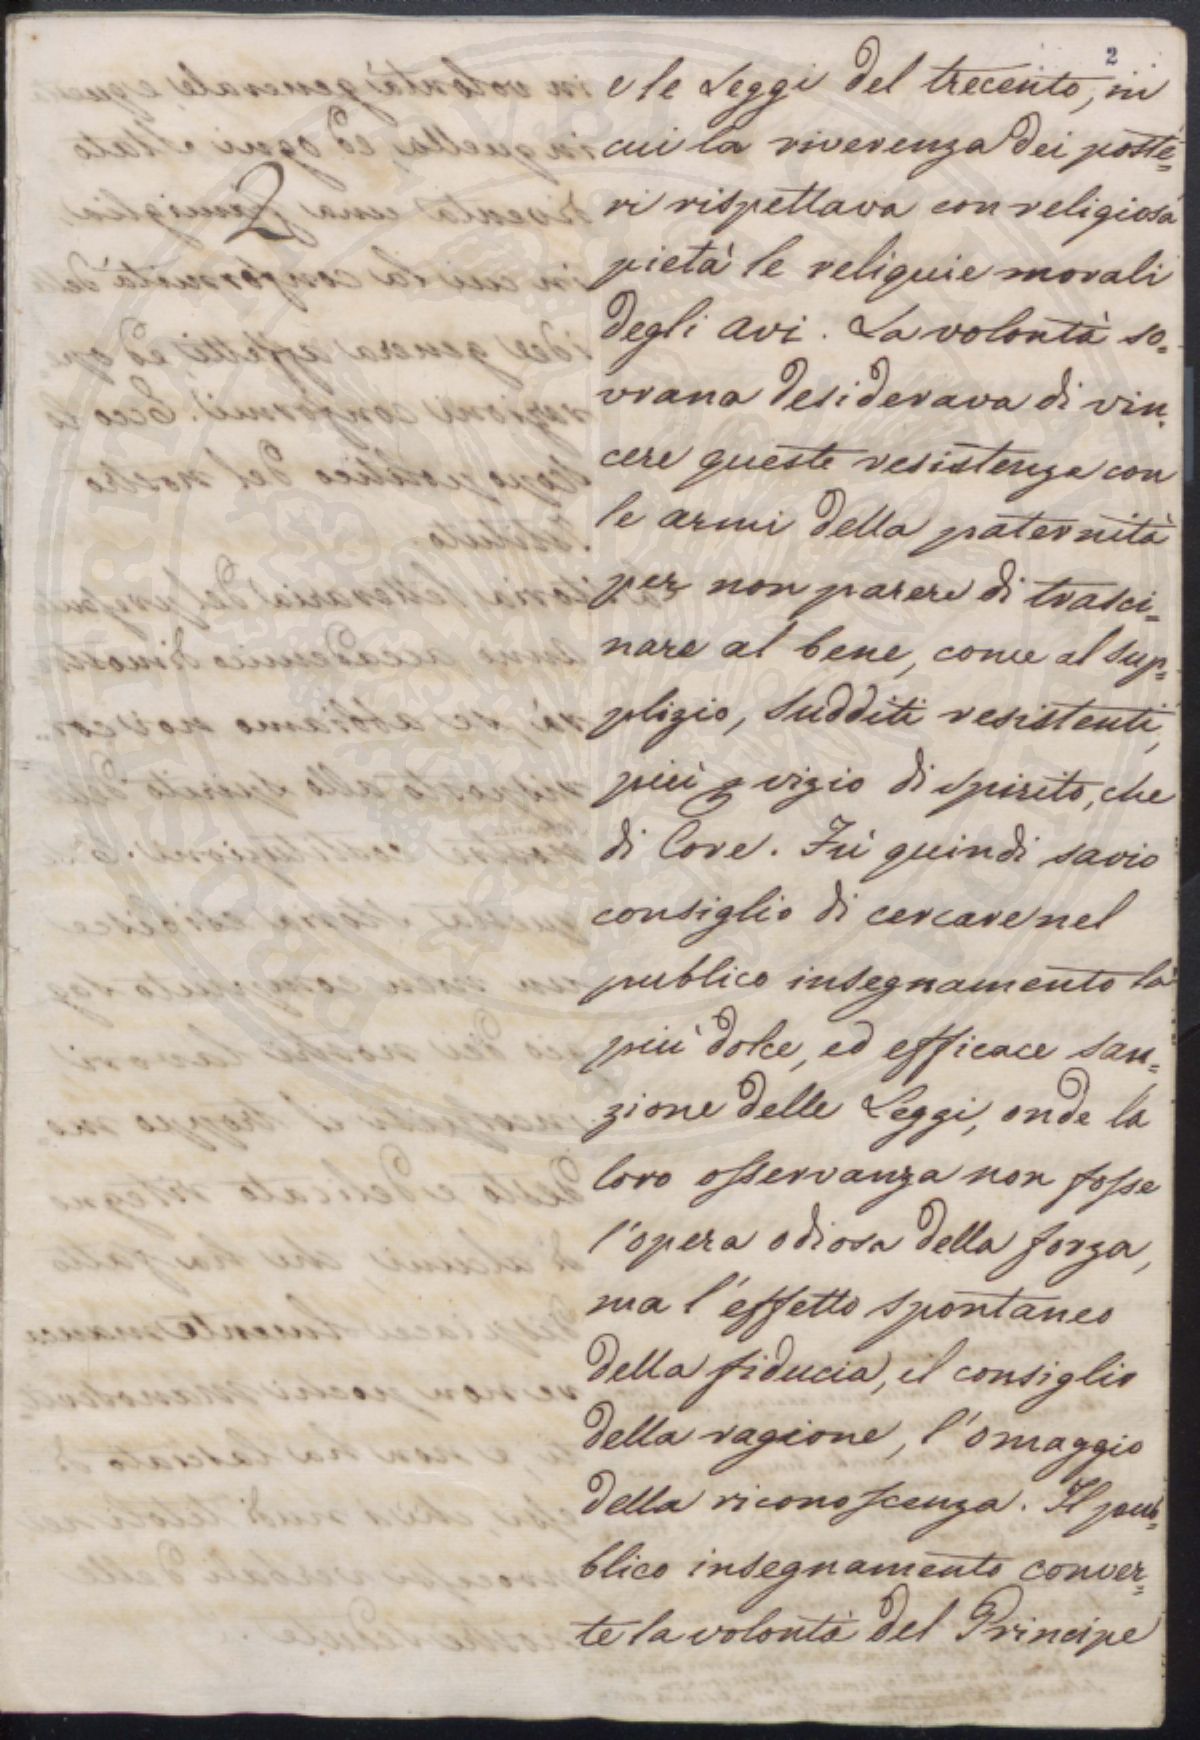 2
2
e le Leggi del trecento, in
cui la riverenza dei poste=
ri rispettava con religiosa
pietà le reliquie morali
degli avi. La volontà so=
vrana desiderava di vin=
cere queste resistenze con
le armi della paternità
per non parere di trasci=
nare al bene, come al sup=
plizio, sudditi resistenti,
più p vizio di spirito, che
di Core. Fù quindi savio
consiglio di cercare nel
publico insegnamento la
più dolce, ed efficace san=
zione delle Leggi, onde la
loro osservanza non fosse
l'opera odiosa della forza,
ma l'effetto spontaneo
della fiducia, il consiglio
della ragione, l'omaggio
della riconoscenza. Il pub=
blico insegnamento conver=
te la volontà del Principe